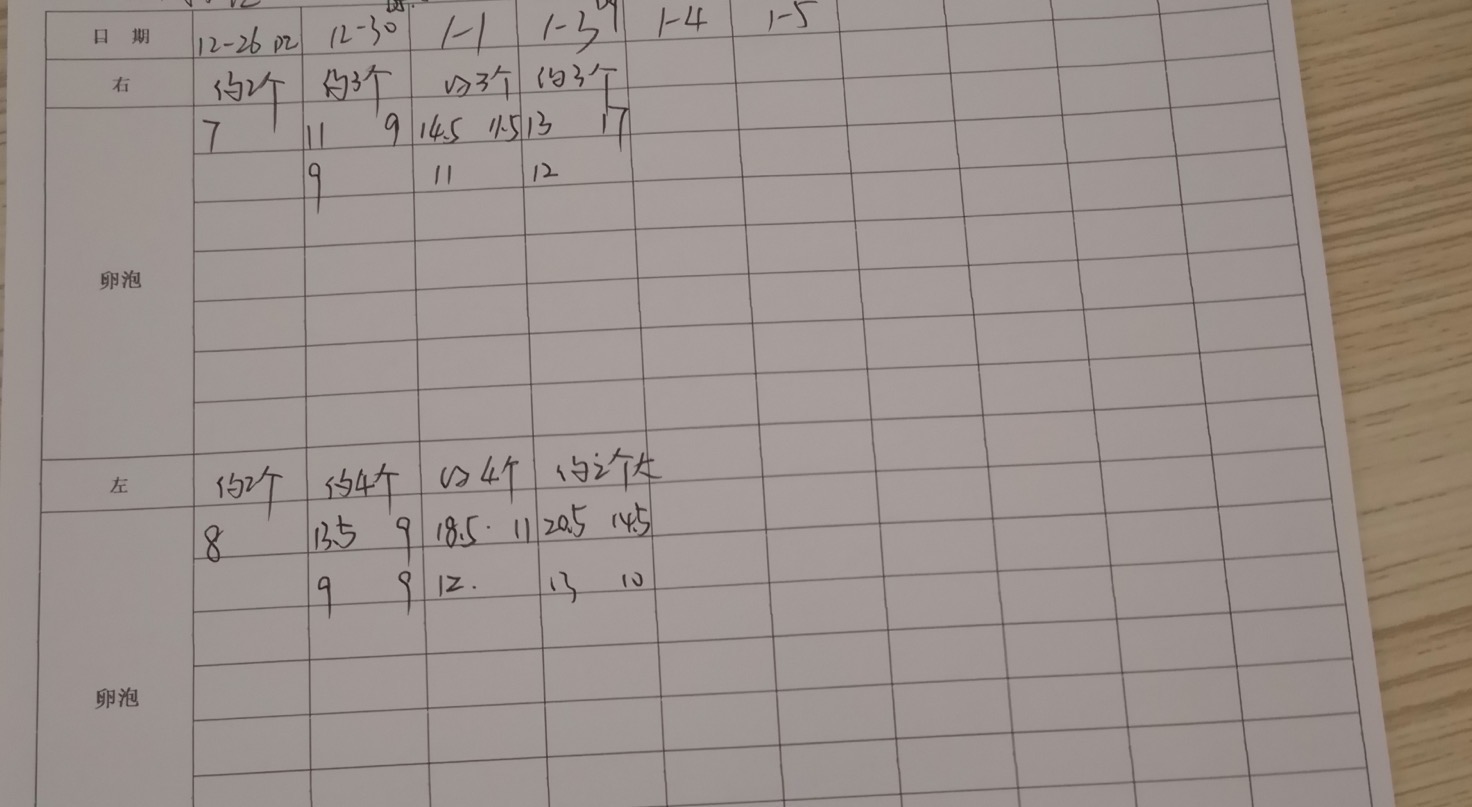 日 期 12-26 D2 12-30 1-1 1-3 1-4 1-5
右 约2个 约3个 约3个 约3个
7 11 9 14.5 11.5 13 17
9 11 12
卵泡
左 约2个 约4个 约4个 约2个大
8 13.5 9 18.5 11 20.5 14.5
9 9 12. 13 10
卵泡